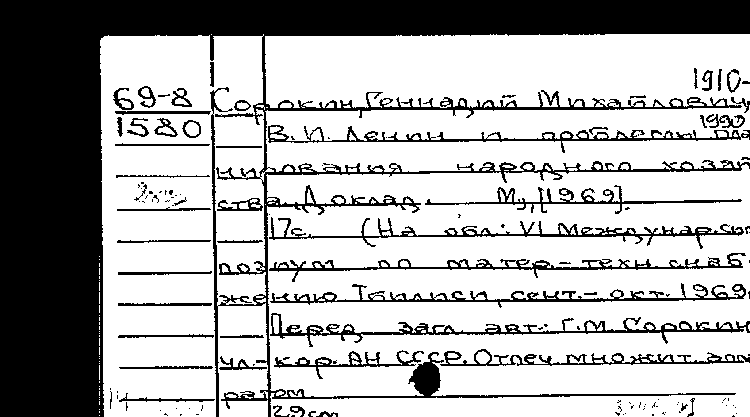 1910-
69-8 Сорокин, Геннадий Михайлович,
1990
1580 В.И. Ленин и проблемы пла
нирования народного хозяй
ства. Доклад. М., [1969].
17с. (На обл.: VI Междунар. сим
позиум по матер.-техн. снаб-
жению Тбилиси, сент.-окт. 1969
Перед загл. авт.: Г.М. Сорокин
чл.-кор. АН СССР. Отпеч. множит. аппа
ратом.
29см